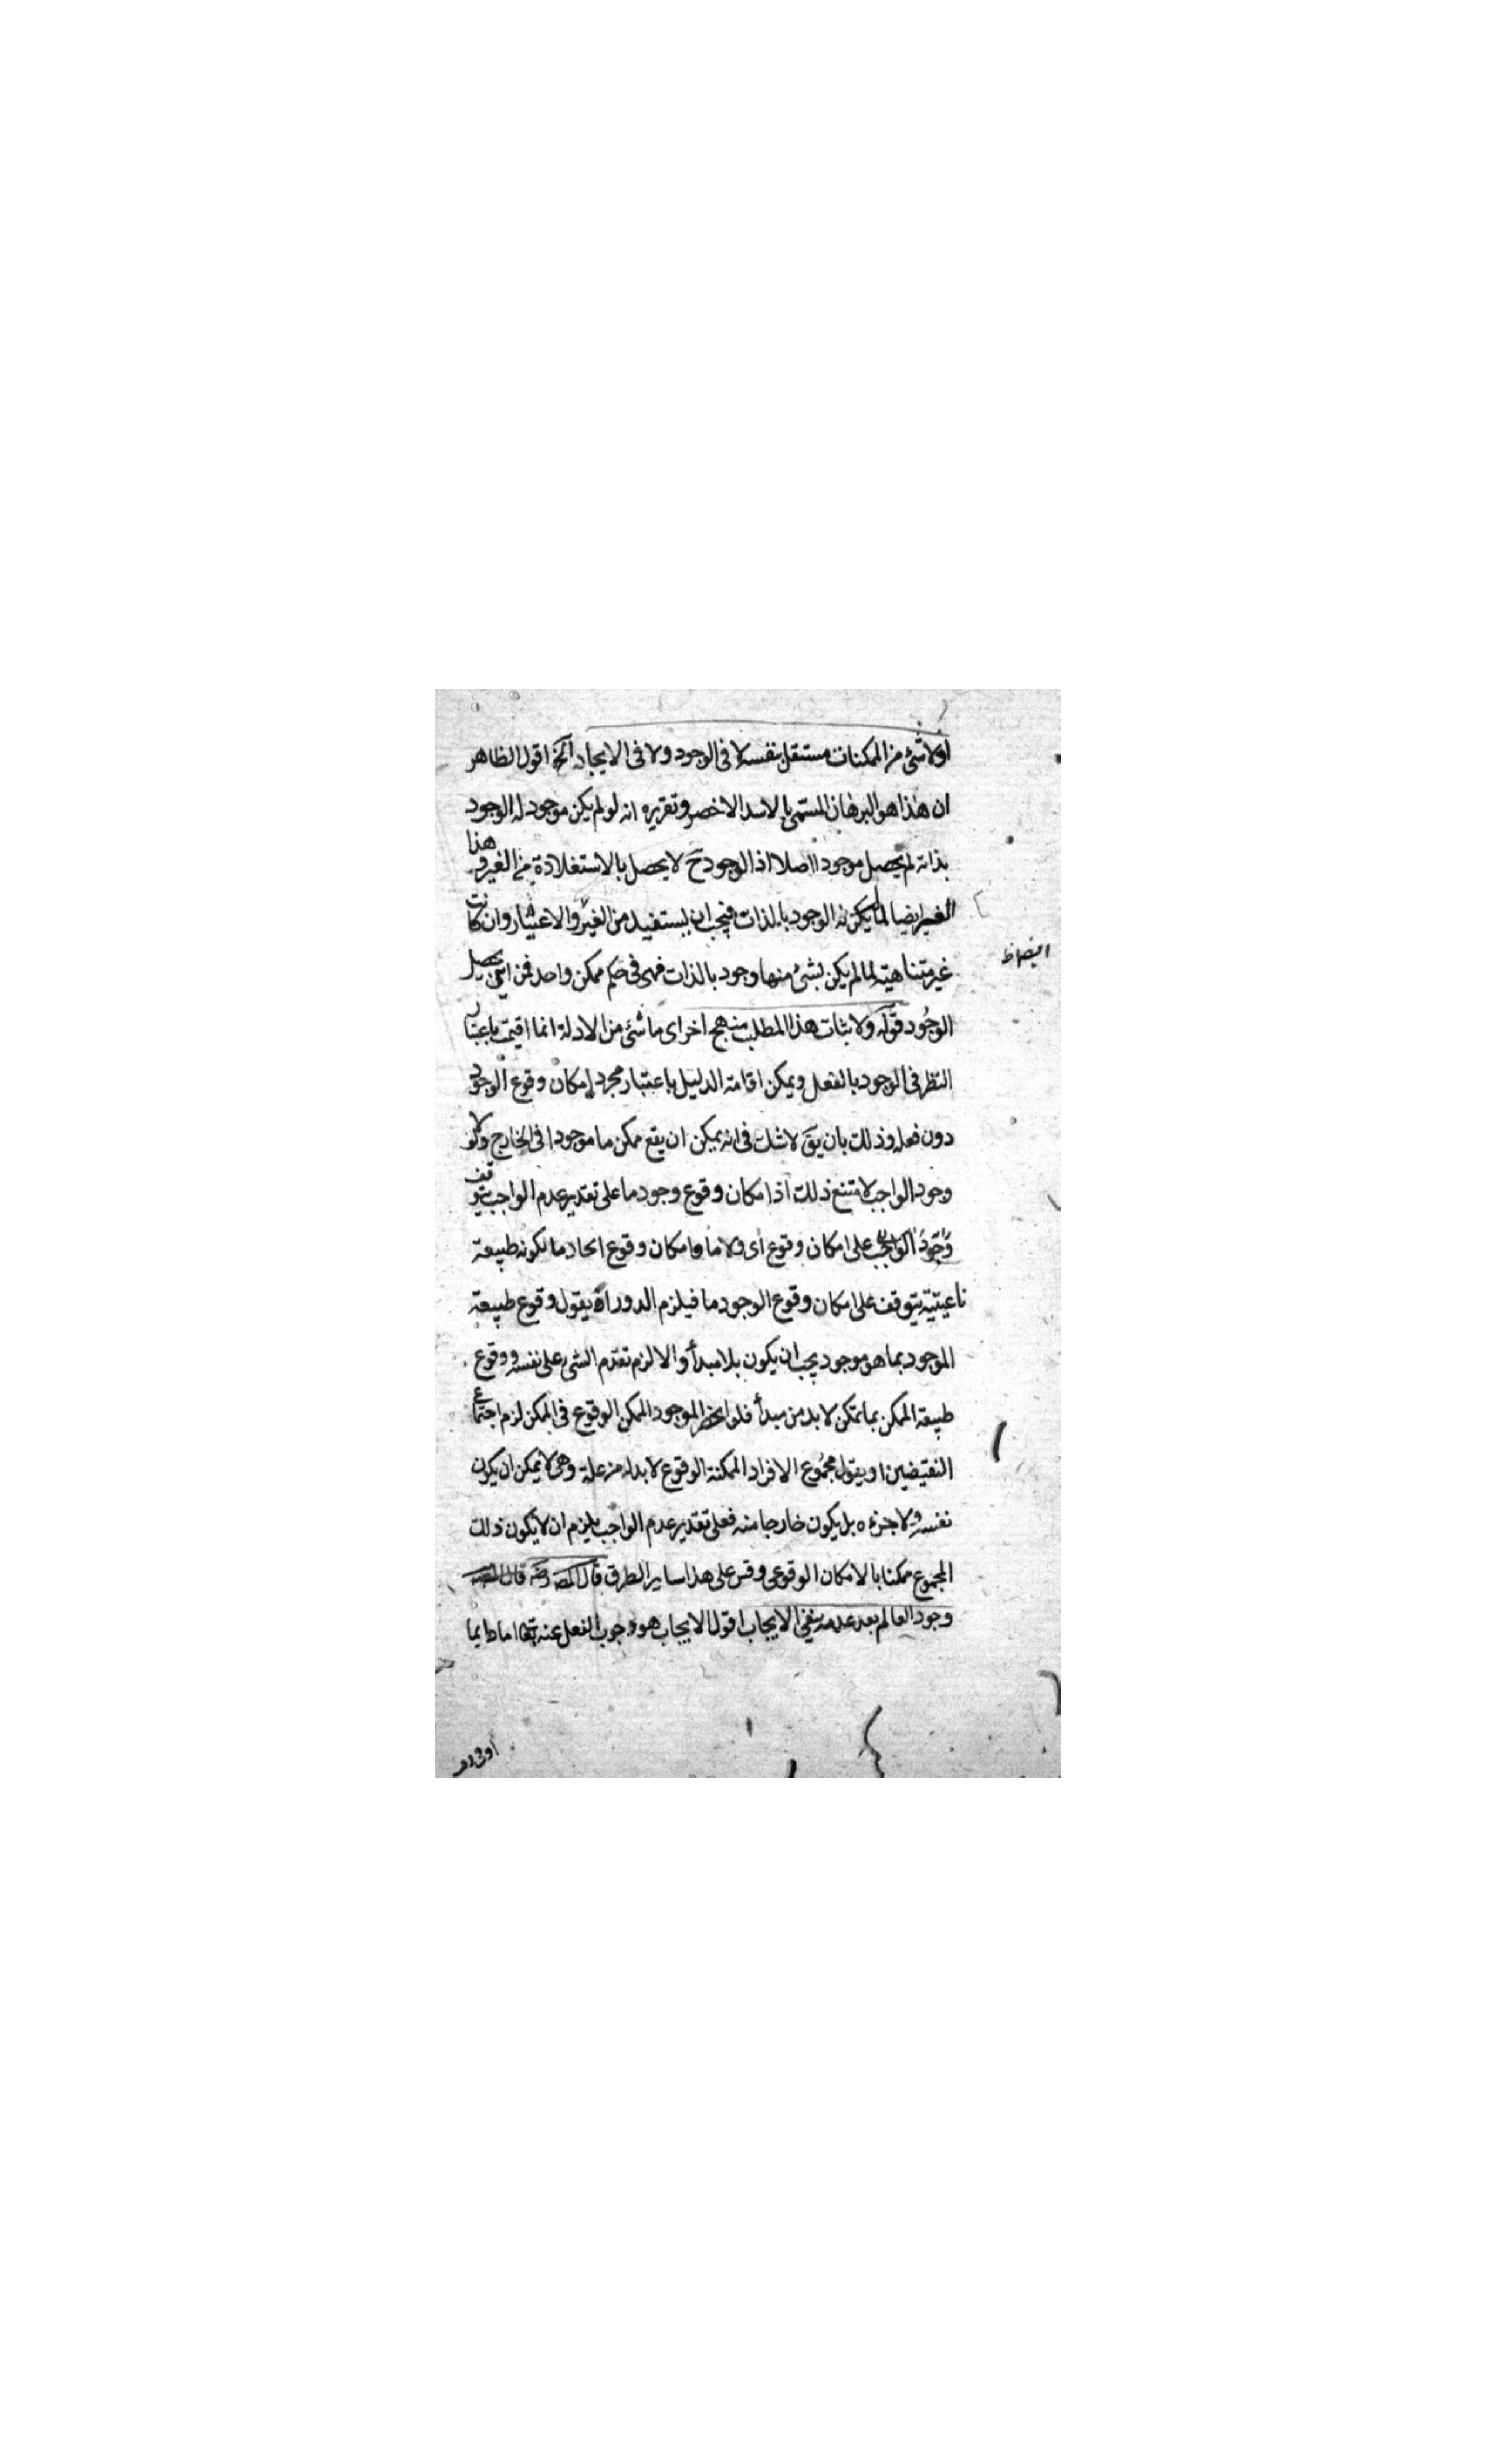 او لا شئ من الممكنات مستقل بنفسه لا فى الوجود ولا فى الايجاد آلخ اقول الظاهر
ان هذا هو البرهان المسمى بالاسد الاخصر وتقريره انه لو لم يكن موجود له الوجود
بذاته لم يحصل موجود اصلا اذ الوجود ح لا يحصل بالا من الغير وهذا
الغير ايضا لما لم يكن له الوجود بالذات فيجب ان يستفيد من الغير والاعتبار وان كانت
غير متناهية لما لم يكن لشئ منها وجود بالذات فهى فى حكم ممكن واحد فمن اين يحصل
الوجود قوله ولاثبات هذا المطلب منهج اخر اى ما شئ من الادلة انما اقيمت باعتبار
النظر فى الوجود بالفعل ويمكن اقامة الدليل باعتبار مجرد امكان وقوع الوجود
دون فعله وذلك بان يق لا شك فى انه يمكن ان يقع ممكن ما موجودا فى الخارج ولولا
وجود الواجب لامتنع ذلك اذ امكان وقوع وجود ما على تقدير عدم الواجب يتوقف
وجود الواجب على امكان وقوع اى ولا ما وامكان وقوع اىحاد ما لكونه طبيعة
ناعيتية يتوقف على امكان وقوع الوجود ما فيلزم الدور او يقول وقوع طبيعة
الموجود بما هو موجود يجب ان يكون بلا مبدأ والا لزم تقدم الشئ على نفسه ووقوع
طبيعة الممكن بما ممكن لا بد من مبدأ فلو انحصر الموجود الممكن الوقوع فى الممكن لزم اجتماع
النقيضين او يقول مجموع الافراد الممكنة الوقوع لا بد له من علة وهى لا يمكن ان يكون
نفسه ولا جزءه بل يكون خارجا منه فعلى تقدير عدم الواجب يلزم ان لا يكون ذلك
المجموع ممكنا بالامكان الوقوعى وقس على هذا ساير الطرق قال المصـ قال
وجود العالم بعد عدمه ينفى الايجاب اقول الايجاب هو وجوب الفعل عنه تعا اما دايما